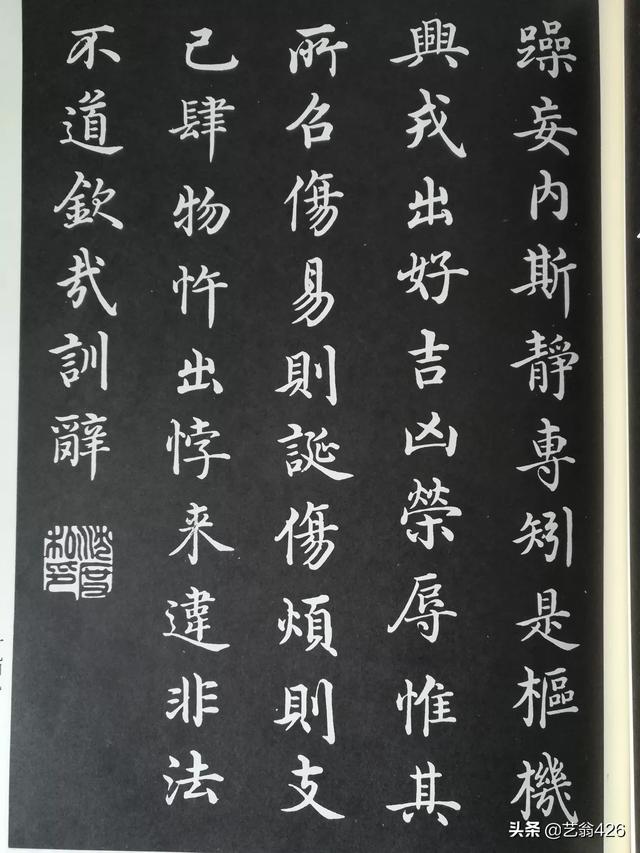 躁妄内斯靜專矧是樞機
興戎出好吉凶榮辱惟其
所召傷易則誕傷煩則支
己肆物忤出悖来違非法
不道欽哉訓辭
头条 @艺翁426